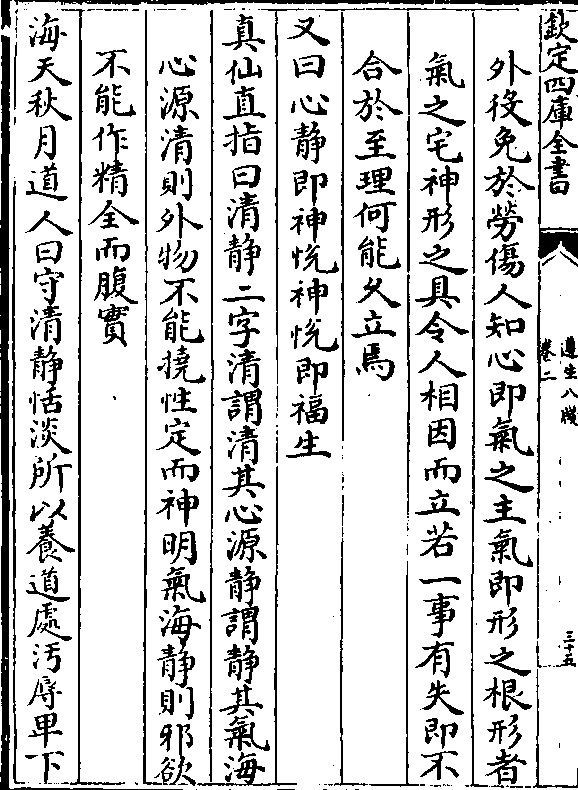 欽定四庫全書
遵生八牋
卷二
三十五
外役免於勞傷人知心即氣之主氣即形之根形者
氣之宅神形之具令人相因而立若一事有失即不
合於至理何能久立焉
又曰心静即神恱神恱即福生
真仙直指曰清静二字清謂清其心源静謂静其氣海
心源清則外物不能撓性定而神明氣海静則邪欲
不能作精全而腹實
海天秋月道人曰守清静恬淡所以養道處汚辱卑下